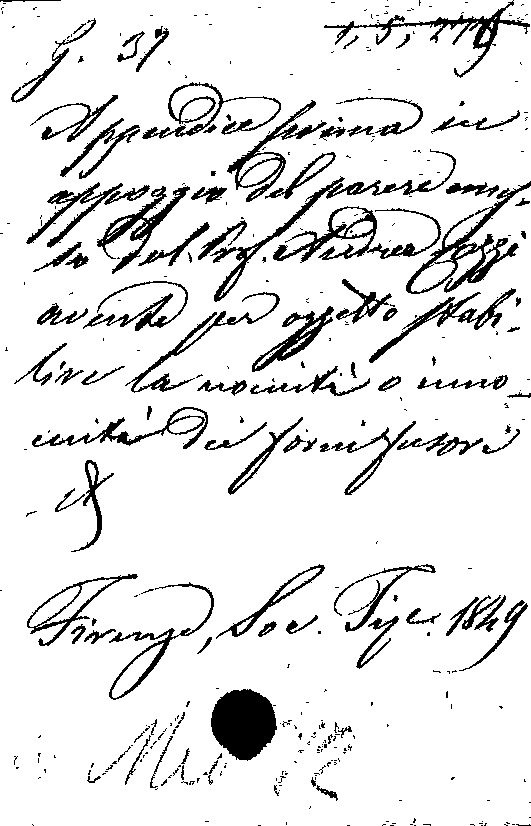 G. 37
1, 5, 279
Appendice prima in
appoggio del parere emes-
so dal Prof. Andrea Cozzi
avente per oggetto stabi-
lire la nocuità o inno-
cuità dei forni fusori
Firenze, Soc. Tip. 1849